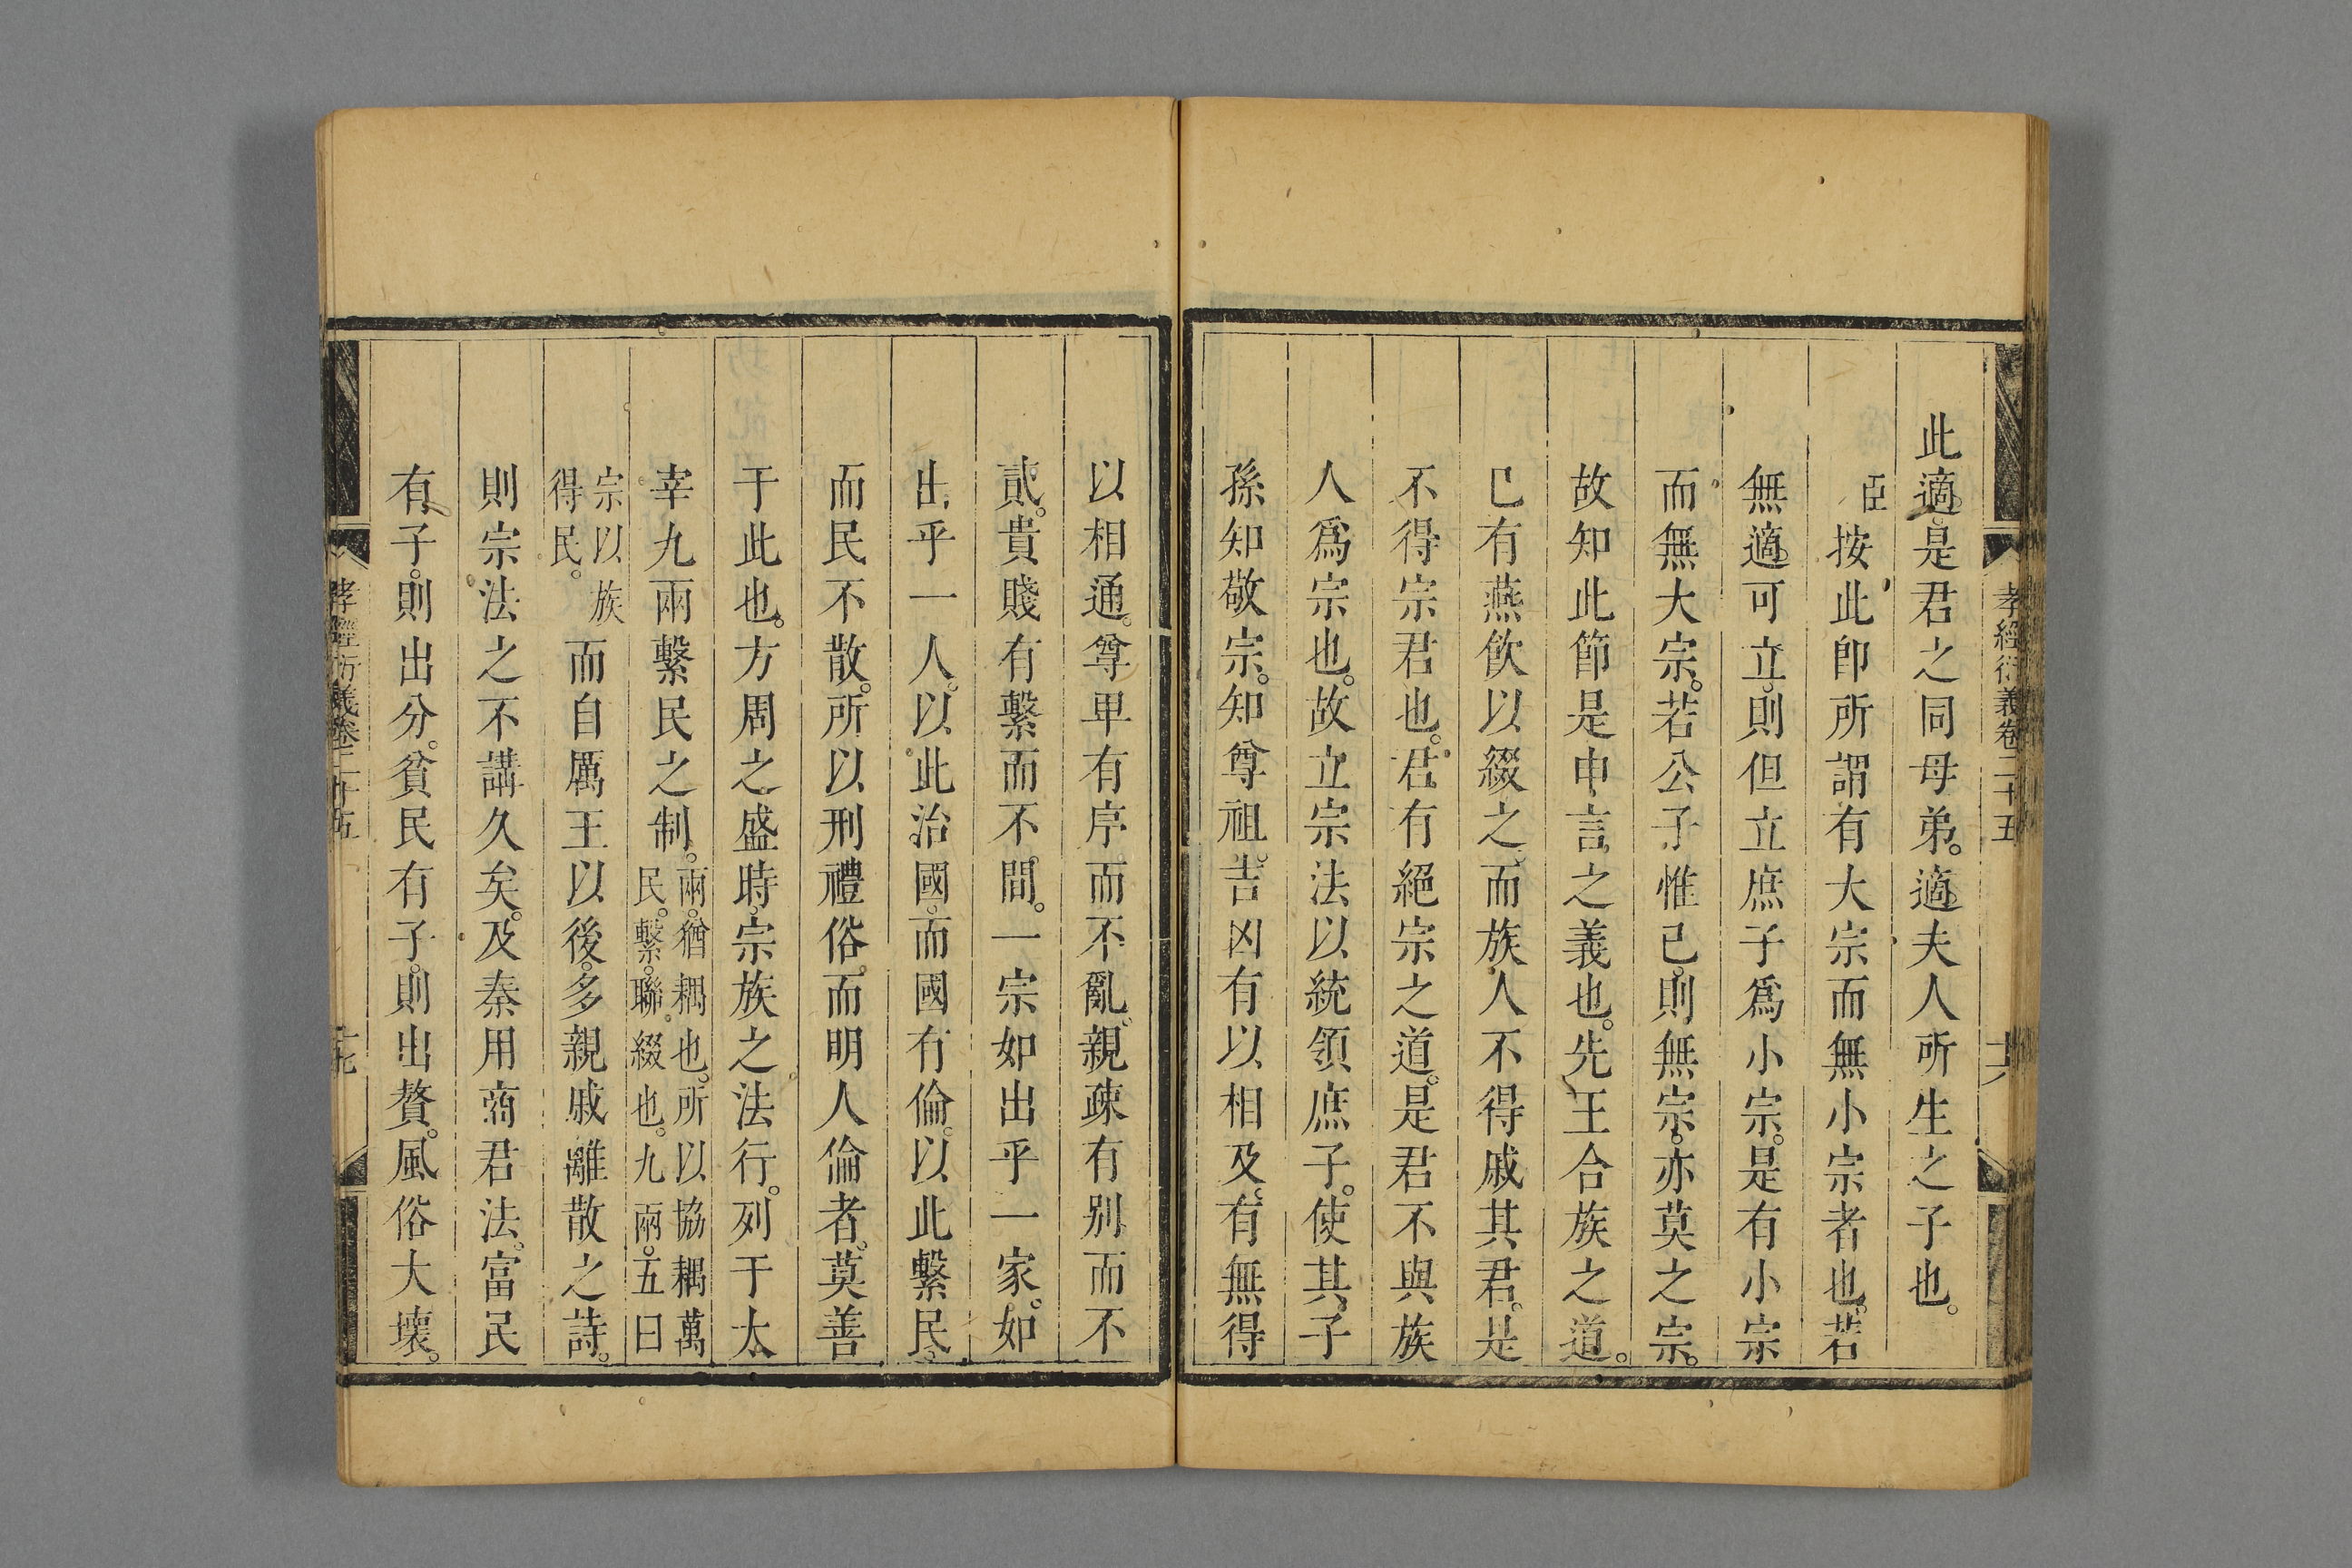 孝經衍義卷二十五
十六
此適。是君之同母弟。適夫人所生之子也。
臣按此卽所謂有大宗而無小宗者也。若
無適可立。則但立庶子爲小宗。是有小宗
而無大宗。若公子惟己。則無宗。亦莫之宗。
故知此節是申言之義也。先王合族之道。
已有燕飲以綴之。而族人不得戚其君。是
不得宗君也。君有絕宗之道。是君不與族
人爲宗也。故立宗法以統領庶子。使其子
孫知敬宗。知尊祖。吉凶有以相及。有無得
以相通。尊卑有序而不亂。親疎有别而不
貳。貴賤有繫而不間。一宗如出乎一家。如
出乎一人。以此治國。而國有倫。以此繫民。
而民不散。所以刑禮俗。而明人倫者。莫善
于此也。方周之盛時。宗族之法行。列于太
宰九兩繫民之制。兩。猶耦也。所以協耦萬
民。繫。聯。綴也。九兩。五曰
宗以族
得民。而自厲王以後。多親戚離散之詩。
則宗法之不講久矣。及秦用商君法。富民
有子。則出分。貧民有子。則出贅。風俗大壞。
孝經衍義卷二十五
十七